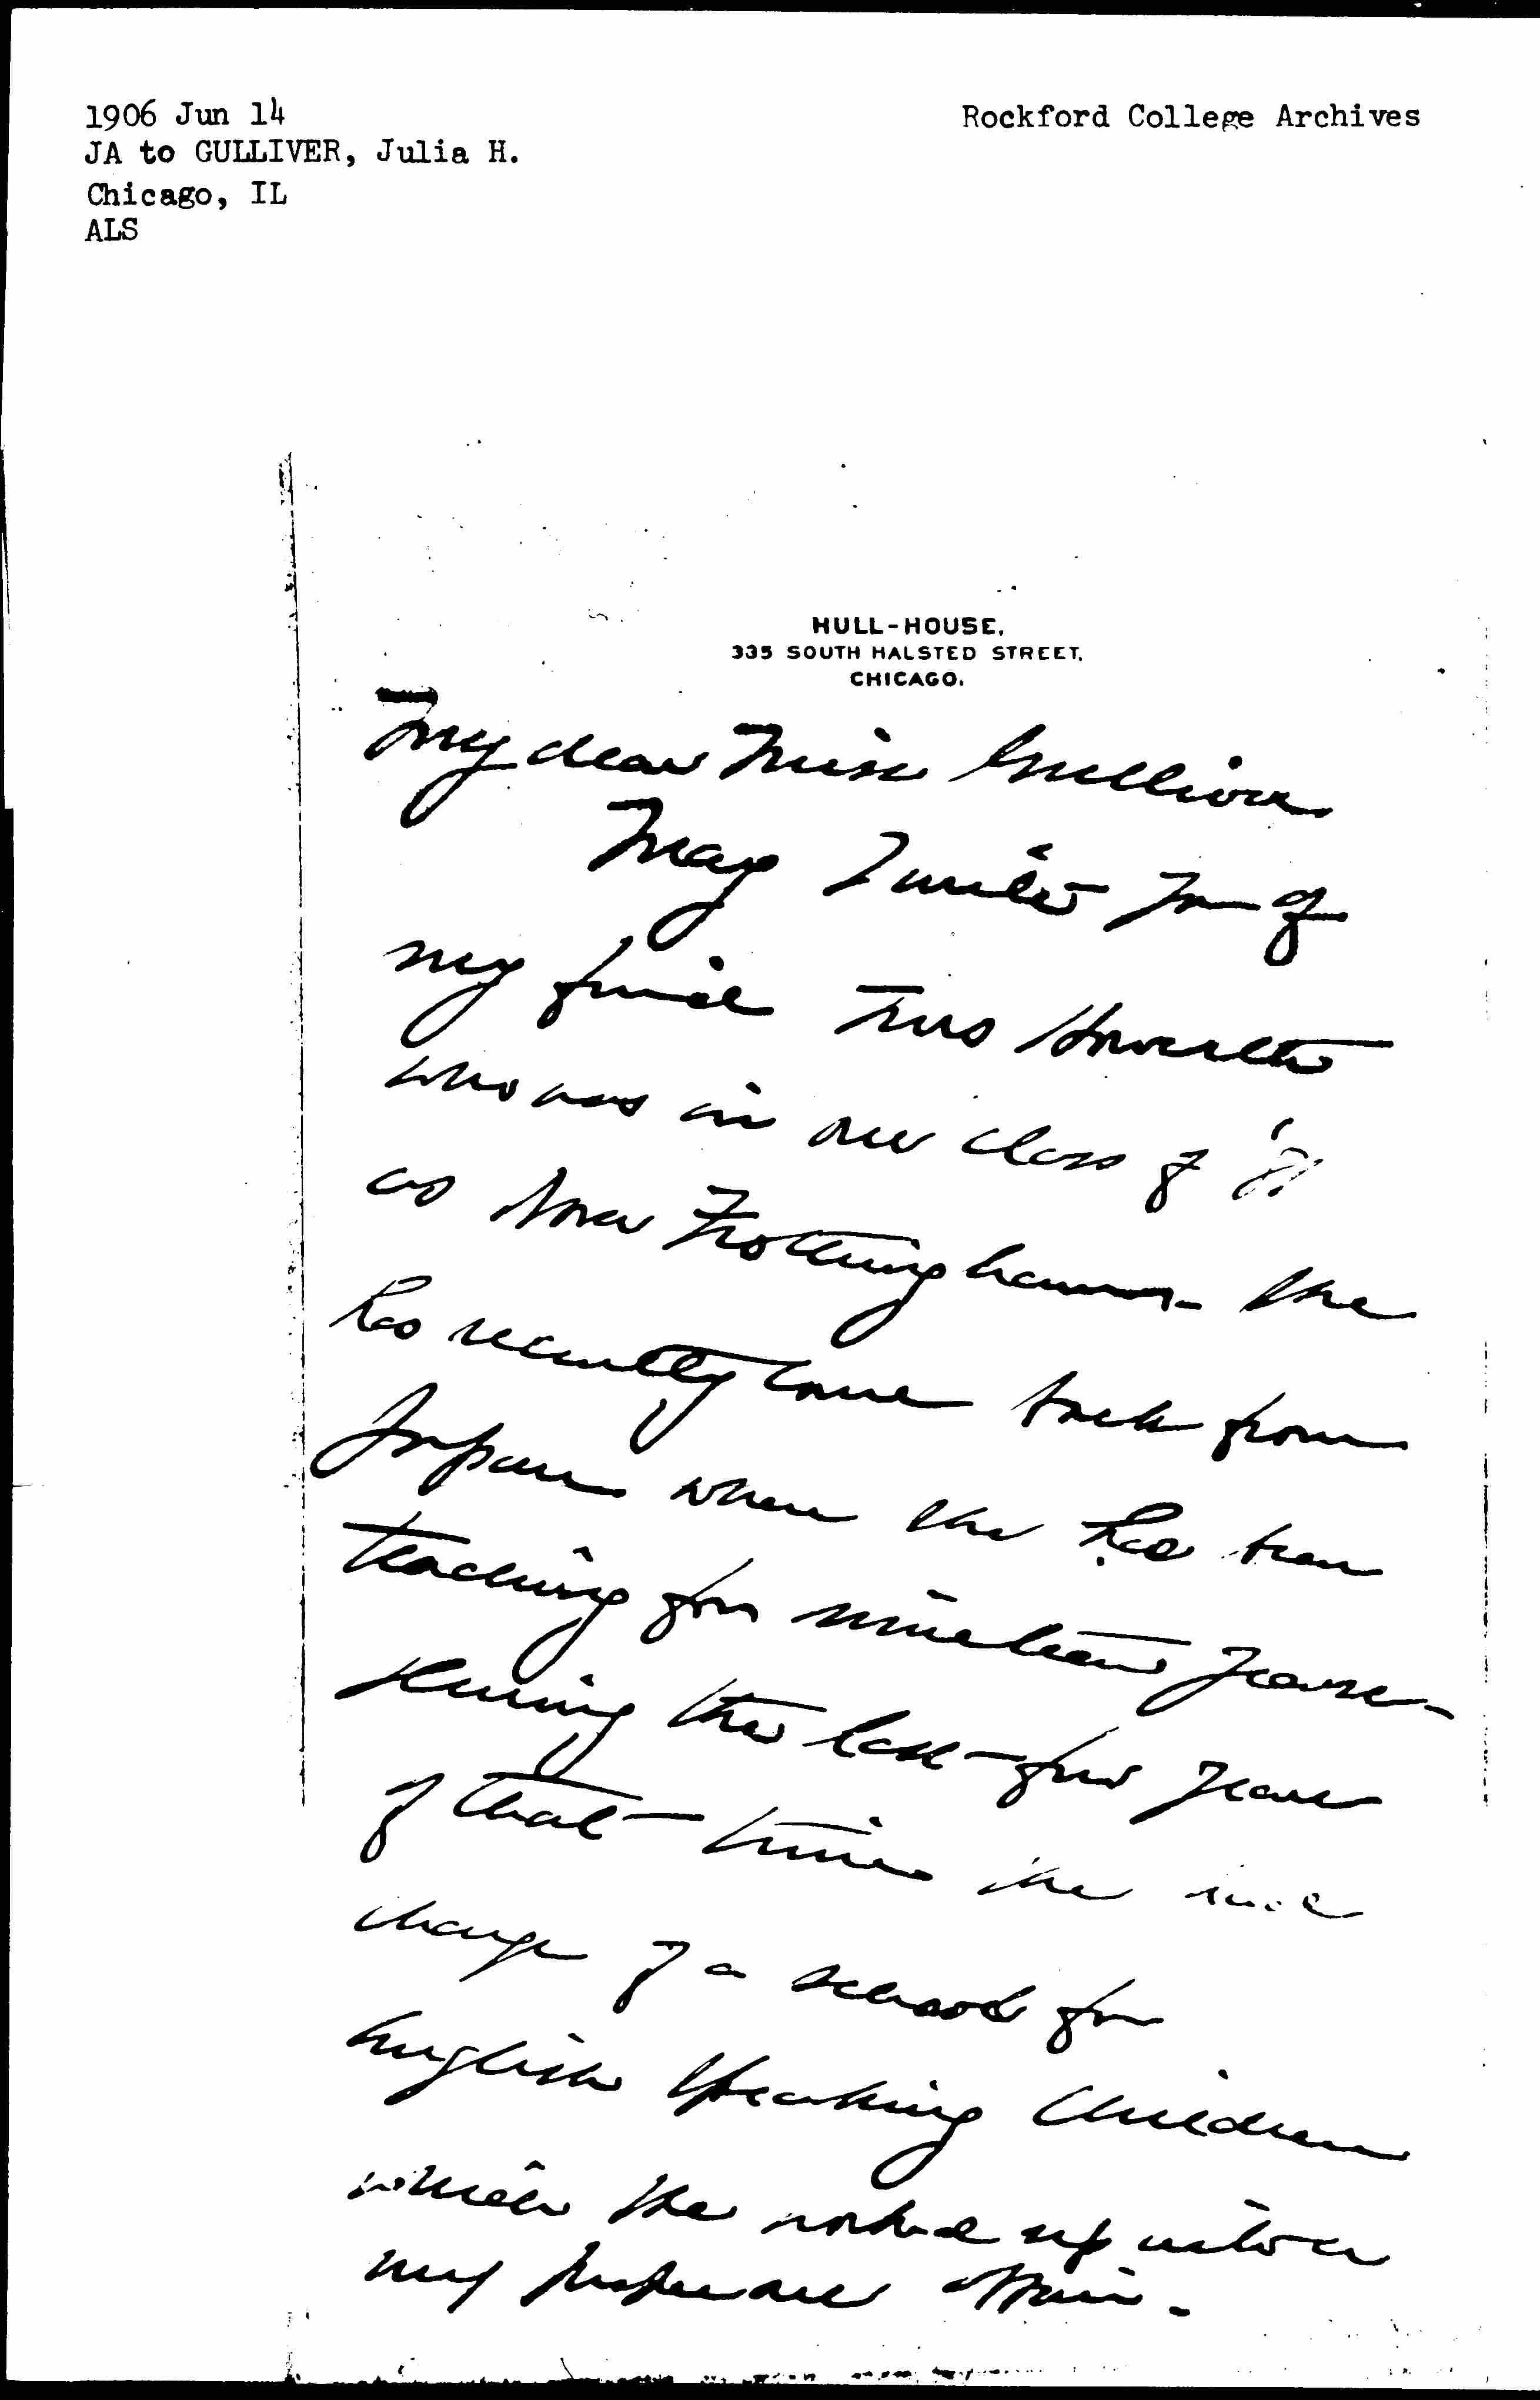 1906 Jun 14
JA to GULLIVER, Julia H.
Chicago, IL
ALS
Rockford College Archives
HULL-HOUSE.
335 SOUTH HALSTED STREET,
CHICAGO.
My dear Miss Gulliver
May I write you of
my friend Mrs Howlett
who was in our class of '81
as Nora Frothingham. She
has recently come back from
Japan where she has been
teaching for nineteen years -
during the last few years
of that time she had
charge of a school for
English speaking children
which she worked up into a
very prosperous affair.